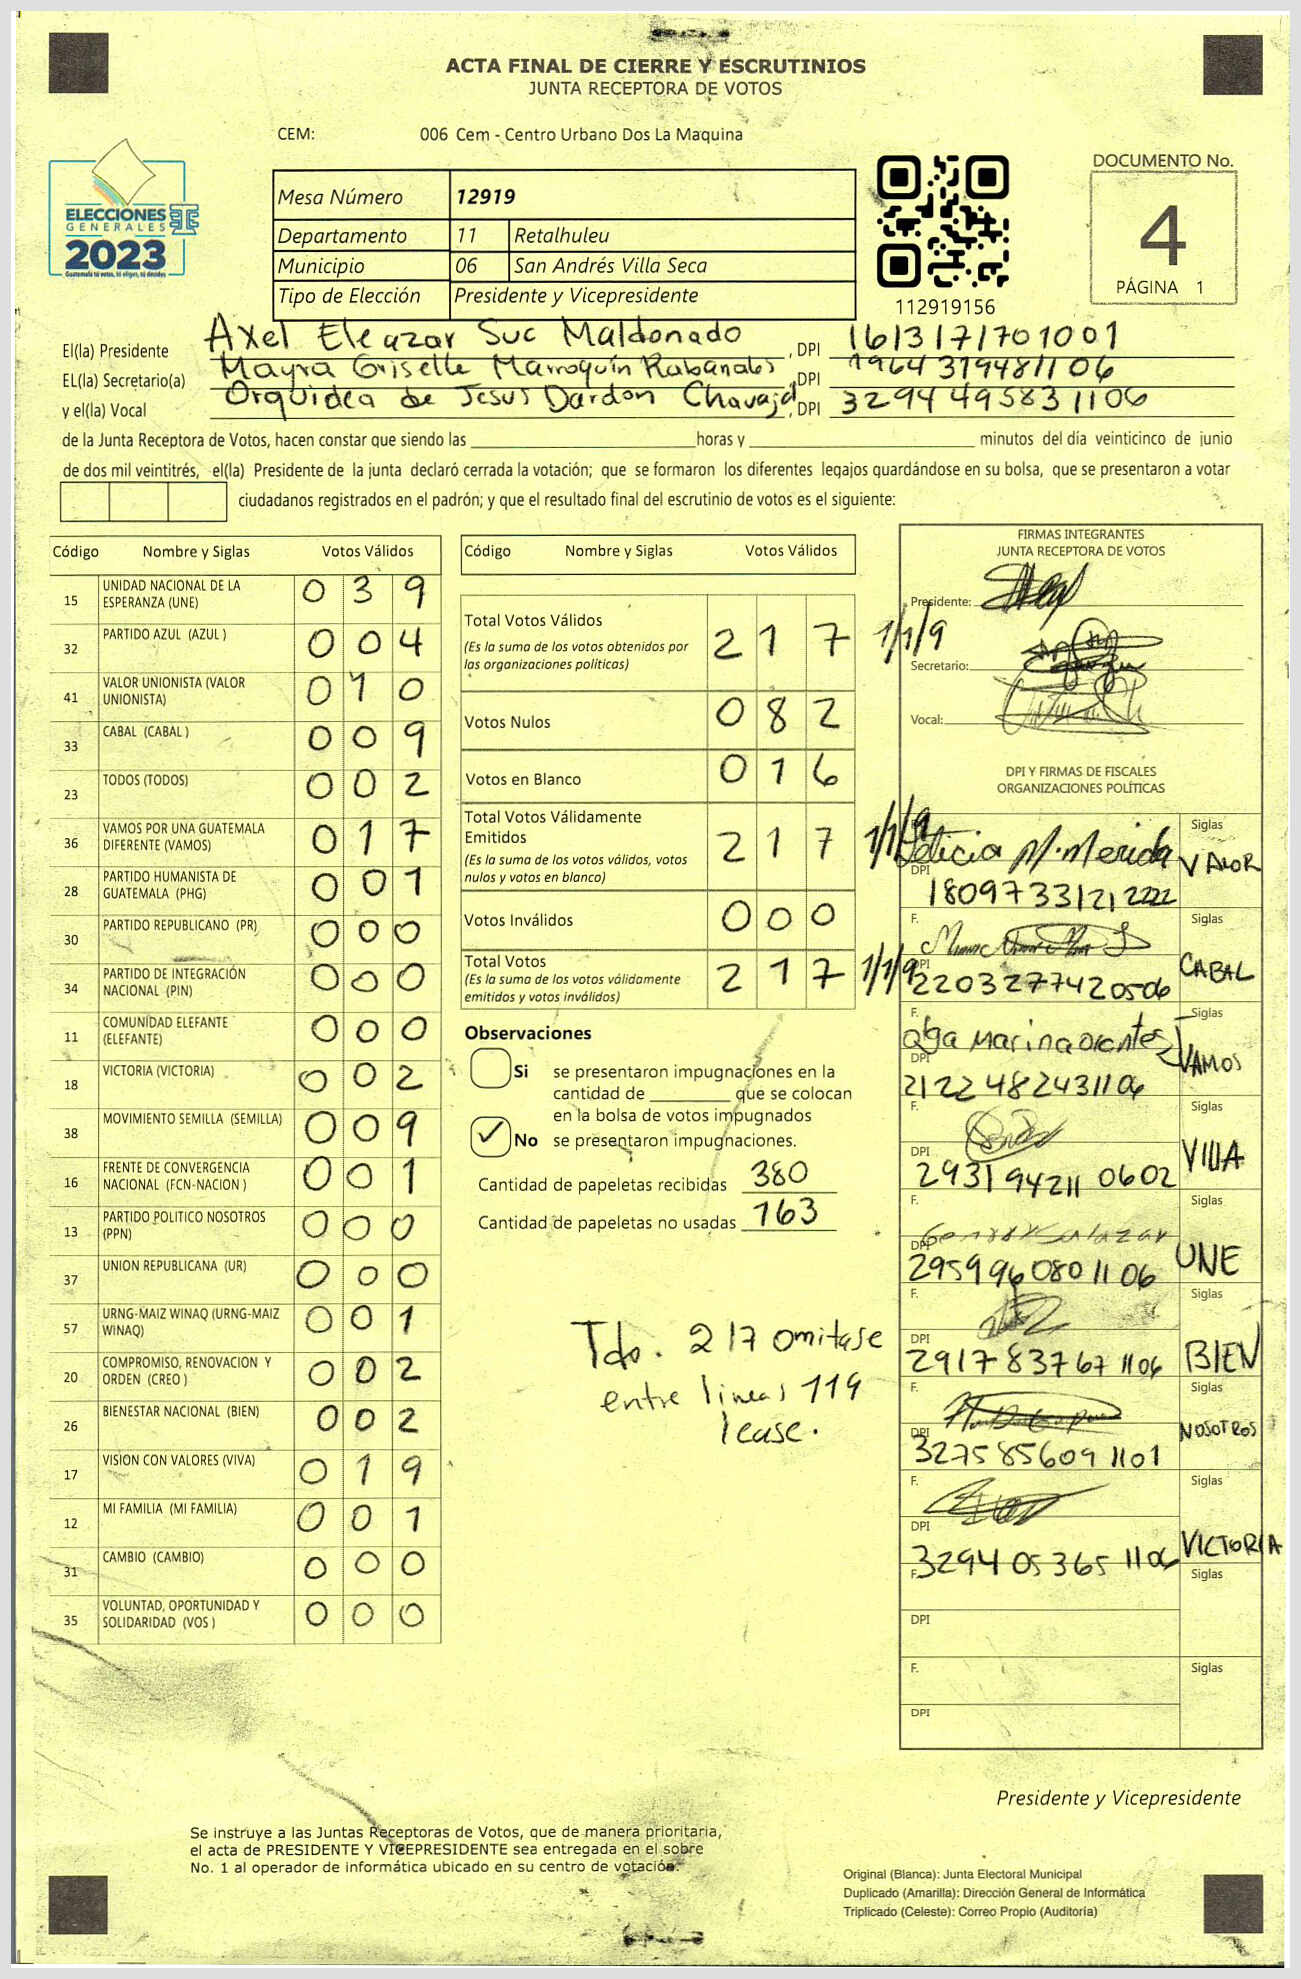 ACTA FINAL DE CIERRE Y ESCRUTINIOS
JUNTA RECEPTORA DE VOTOS
CEM: 006 Cem - Centro Urbano Dos La Maquina
ELECCIONES
GENERALES
2023
Guatemala tú votas, tú eliges, tú decides
Mesa Número 12919
Departamento 11 Retalhuleu
Municipio 06 San Andrés Villa Seca
Tipo de Elección Presidente y Vicepresidente
112919156
DOCUMENTO No.
4
PÁGINA 1
El(la) Presidente Axel Eleazar Suc Maldonado , DPI 1613171701001
EL(la) Secretario(a) Mayra Griselle Marroquín Rabanales , DPI 1964319481106
y el(la) Vocal Orquidea de Jesus Dardon Chavajal , DPI 3294495831106
de la Junta Receptora de Votos, hacen constar que siendo las horas y minutos del día veinticinco de junio
de dos mil veintitrés, el(la) Presidente de la junta declaró cerrada la votación; que se formaron los diferentes legajos guardándose en su bolsa, que se presentaron a votar
ciudadanos registrados en el padrón; y que el resultado final del escrutinio de votos es el siguiente:
Código Nombre y Siglas Votos Válidos
15 UNIDAD NACIONAL DE LA ESPERANZA (UNE) 0 3 9
32 PARTIDO AZUL (AZUL ) 0 0 4
41 VALOR UNIONISTA (VALOR UNIONISTA) 0 1 0
33 CABAL (CABAL ) 0 0 9
23 TODOS (TODOS) 0 0 2
36 VAMOS POR UNA GUATEMALA DIFERENTE (VAMOS) 0 1 7
28 PARTIDO HUMANISTA DE GUATEMALA (PHG) 0 0 1
30 PARTIDO REPUBLICANO (PR) 0 0 0
34 PARTIDO DE INTEGRACIÓN NACIONAL (PIN) 0 0 0
11 COMUNIDAD ELEFANTE (ELEFANTE) 0 0 0
18 VICTORIA (VICTORIA) 0 0 2
38 MOVIMIENTO SEMILLA (SEMILLA) 0 0 9
16 FRENTE DE CONVERGENCIA NACIONAL (FCN-NACION ) 0 0 1
13 PARTIDO POLITICO NOSOTROS (PPN) 0 0 0
37 UNION REPUBLICANA (UR) 0 0 0
57 URNG-MAIZ WINAQ (URNG-MAIZ WINAQ) 0 0 1
20 COMPROMISO, RENOVACION Y ORDEN (CREO ) 0 0 2
26 BIENESTAR NACIONAL (BIEN) 0 0 2
17 VISION CON VALORES (VIVA) 0 1 9
12 MI FAMILIA (MI FAMILIA) 0 0 1
31 CAMBIO (CAMBIO) 0 0 0
35 VOLUNTAD, OPORTUNIDAD Y SOLIDARIDAD (VOS ) 0 0 0
Código Nombre y Siglas Votos Válidos
Total Votos Válidos 2 1 7 1/1/9
(Es la suma de los votos obtenidos por
las organizaciones políticas)
Votos Nulos 0 8 2
Votos en Blanco 0 1 6
Total Votos Válidamente
Emitidos 2 1 7 1/1/9
(Es la suma de los votos válidos, votos
nulos y votos en blanco)
Votos Inválidos 0 0 0
Total Votos 2 1 7 1/1/9
(Es la suma de los votos válidamente
emitidos y votos inválidos)
Observaciones
Si se presentaron impugnaciones en la
cantidad de que se colocan
en la bolsa de votos impugnados
✓ No se presentaron impugnaciones.
Cantidad de papeletas recibidas 380
Cantidad de papeletas no usadas 163
Tdo. 217 omitase
entre lineas 119
lease.
FIRMAS INTEGRANTES
JUNTA RECEPTORA DE VOTOS
Presidente:
Secretario:
Vocal:
DPI Y FIRMAS DE FISCALES
ORGANIZACIONES POLÍTICAS
Leticia M. Merida Siglas VALOR
DPI 1809733121222
F. Siglas CABAL
DPI 2203277420506
F. Olga Marina Siglas VAMOS
DPI 2122482431106
F. Siglas VIVA
DPI 2931942110602
F. Salazar Siglas UNE
DPI 2959960801106
F. Siglas BIEN
DPI 2917837671106
F. Siglas NOSOTROS
DPI 3275856091101
F. Siglas VICTORIA
DPI 3294053651106
F. Siglas
DPI
F. Siglas
DPI
Presidente y Vicepresidente
Se instruye a las Juntas Receptoras de Votos, que de manera prioritaria,
el acta de PRESIDENTE Y VICEPRESIDENTE sea entregada en el sobre
No. 1 al operador de informática ubicado en su centro de votación.
Original (Blanca): Junta Electoral Municipal
Duplicado (Amarilla): Dirección General de Informática
Triplicado (Celeste): Correo Propio (Auditoría)